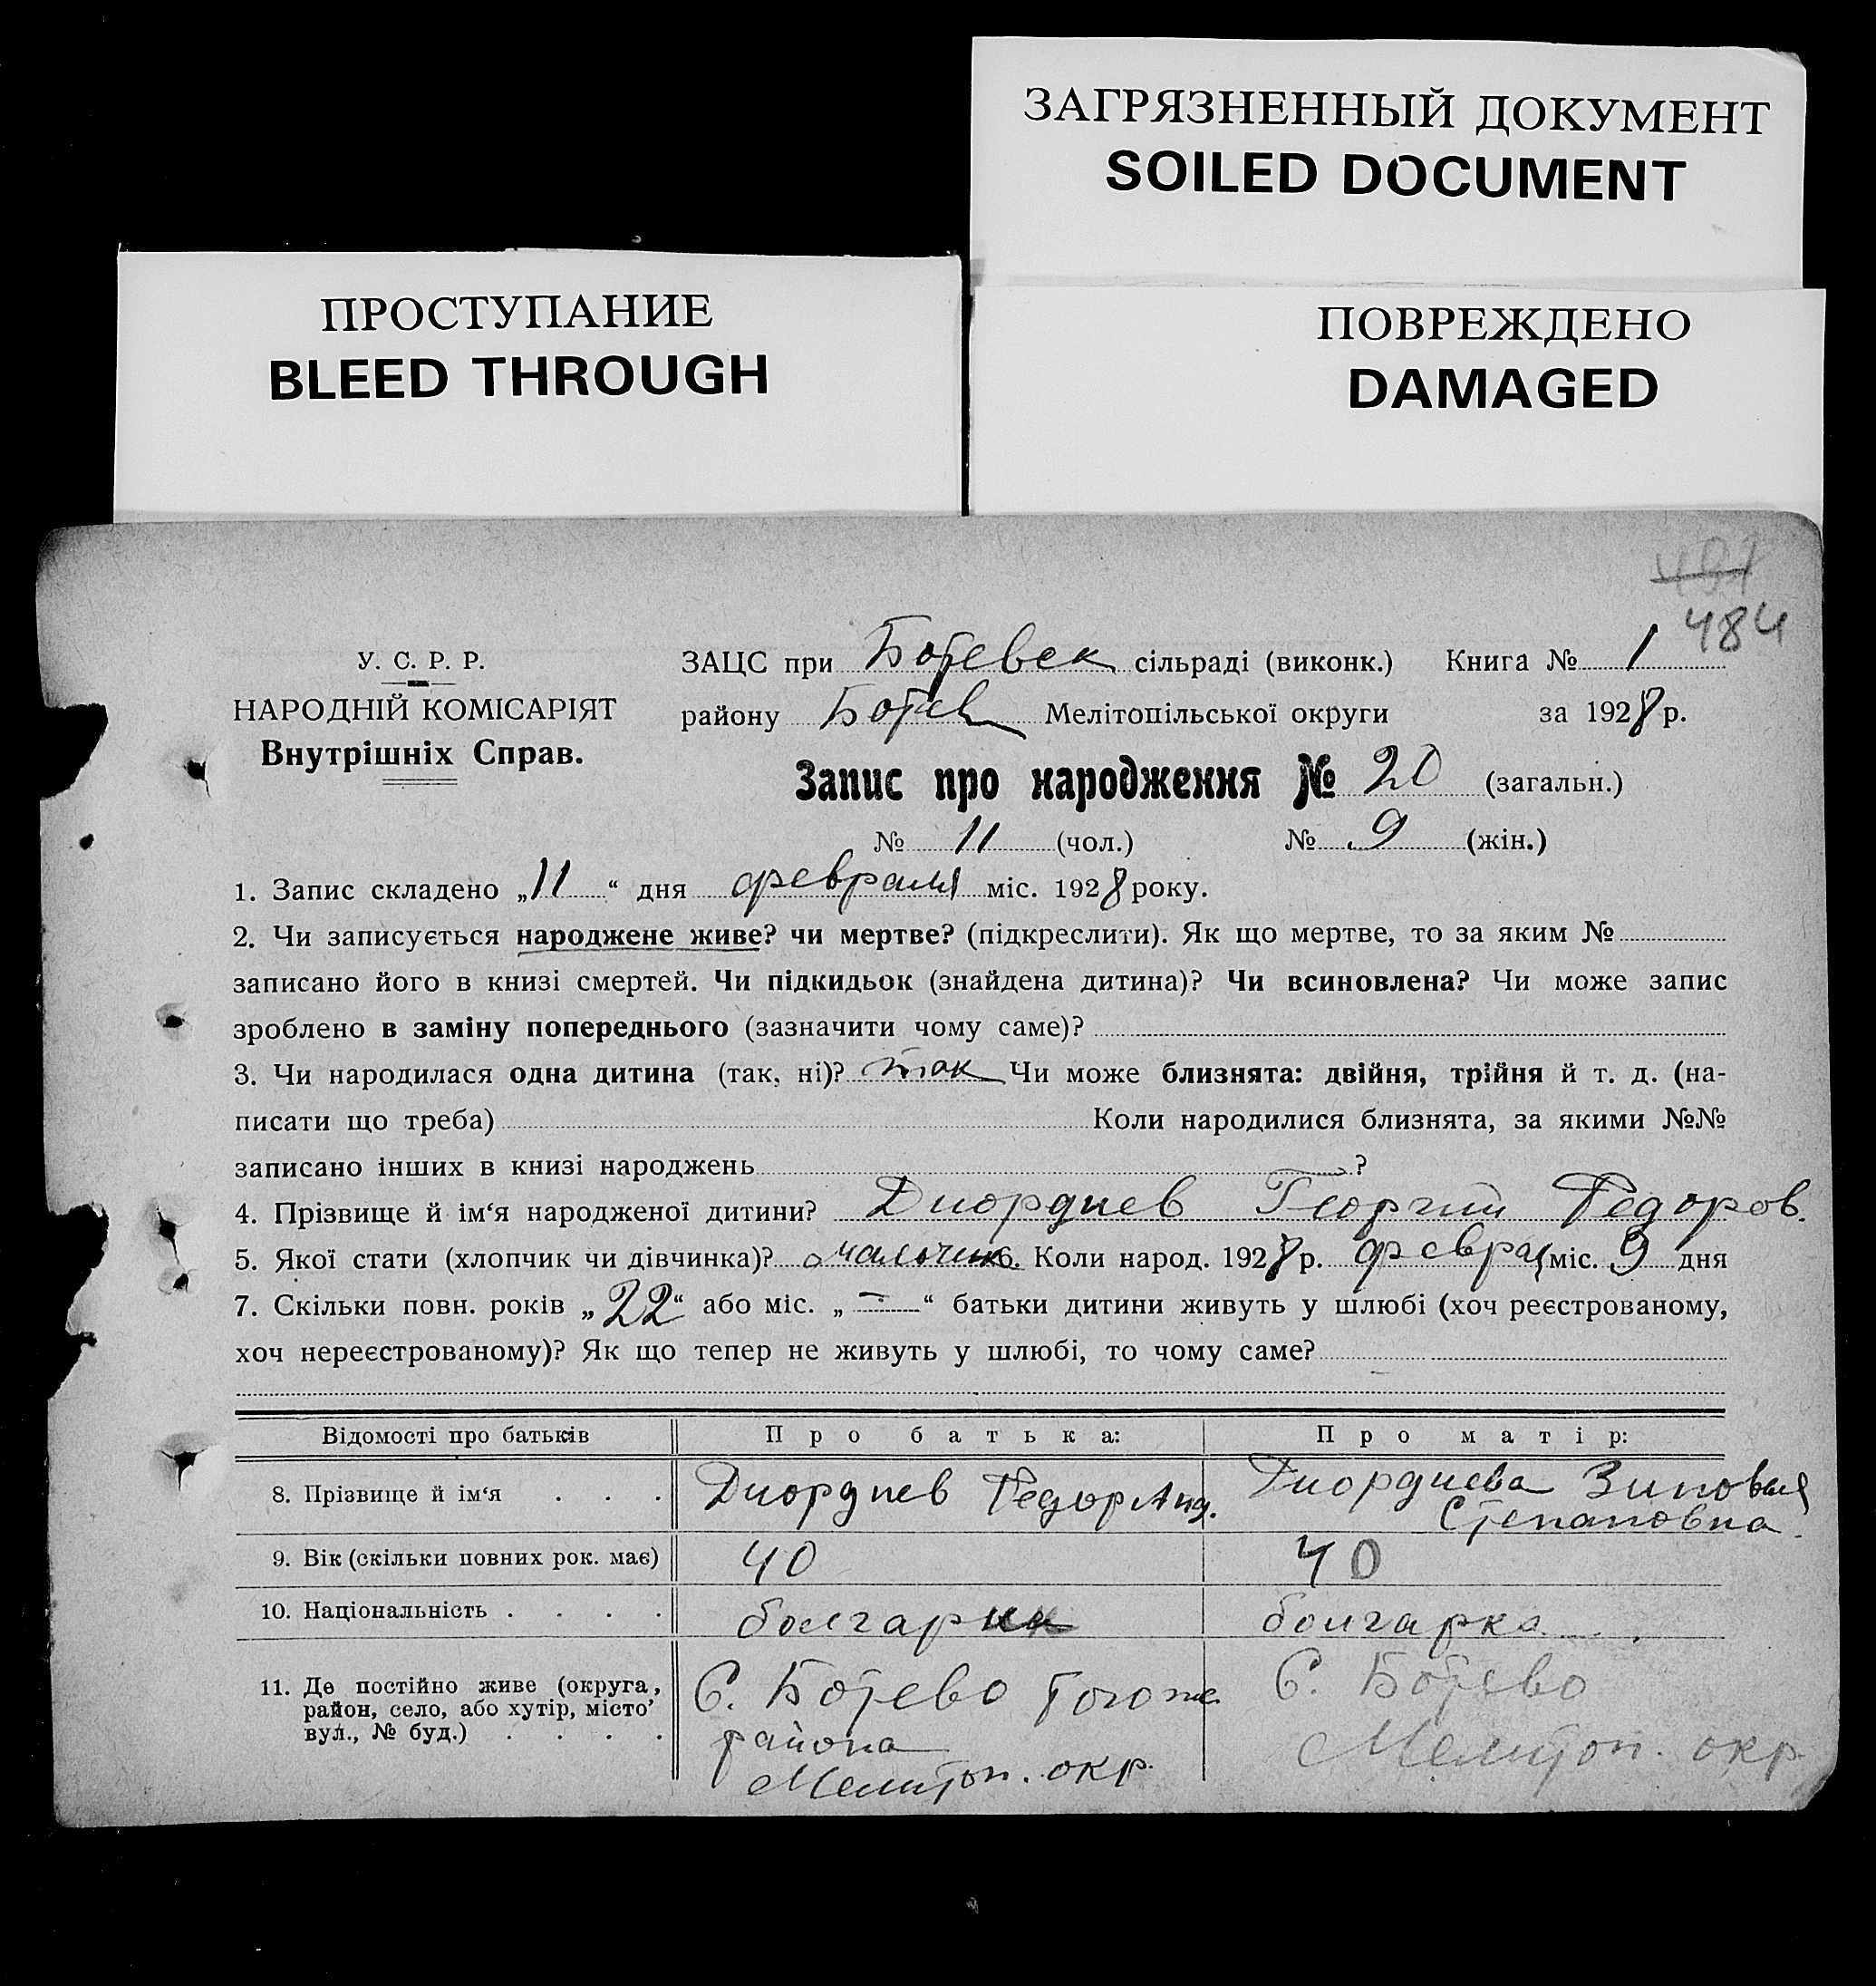 ЗАГРЯЗНЕННЫЙ ДОКУМЕНТ
SOILED DOCUMENT
ПРОСТУПАНИЕ
BLEED THROUGH
ПОВРЕЖДЕНО
DAMAGED
484
У. С. Р. Р.
НАРОДНІЙ КОМІСАРІЯТ
Внутрішніх Справ.
ЗАЦС при Ботевск сільраді (виконк.) Книга № 1
району Ботев Мелітопільської округи за 1928 р.
Запис про народження № 20 (загальн.)
№ 11 (чол.) № 9 (жін.)
1. Запис складено „11“ дня февраля міс. 1928 року.
2. Чи записується народжене живе? чи мертве? (підкреслити). Як що мертве, то за яким №
записано його в книзі смертей. Чи підкидьок (знайдена дитина)? Чи всиновлена? Чи може запис
зроблено в заміну попереднього (зазначити чому саме)?
3. Чи народилася одна дитина (так, ні)? так Чи може близнята: двійня, трійня й т. д. (на-
писати що треба) Коли народилися близнята, за якими №№
записано інших в книзі народжень ?
4. Прізвище й ім‘я народженої дитини? Диордиев Георгий Федоров.
5. Якої стати (хлопчик чи дівчинка)? мальчик 6. Коли народ. 1928 р. феврал міс. 9 дня
7. Скільки повн. років „22“ або міс. „—“ батьки дитини живуть у шлюбі (хоч реєстрованому,
хоч нереєстрованому)? Як що тепер не живуть у шлюбі, то чому саме?
Відомості про батьків Про батька: Про матір:
8. Прізвище й ім‘я . . . Диордиев Федор Анд. Диордиева Зиновья
Степановна
9. Вік (скільки повних рок. має) 40 40
10. Національність . . . . болгарин болгарка
11. Де постійно живе (округа, район, село, або хутір, місто’ вул., № буд.) . . . .
С. Ботево того же
района
Мелитоп. окр.
С. Ботево
Мелитоп. окр